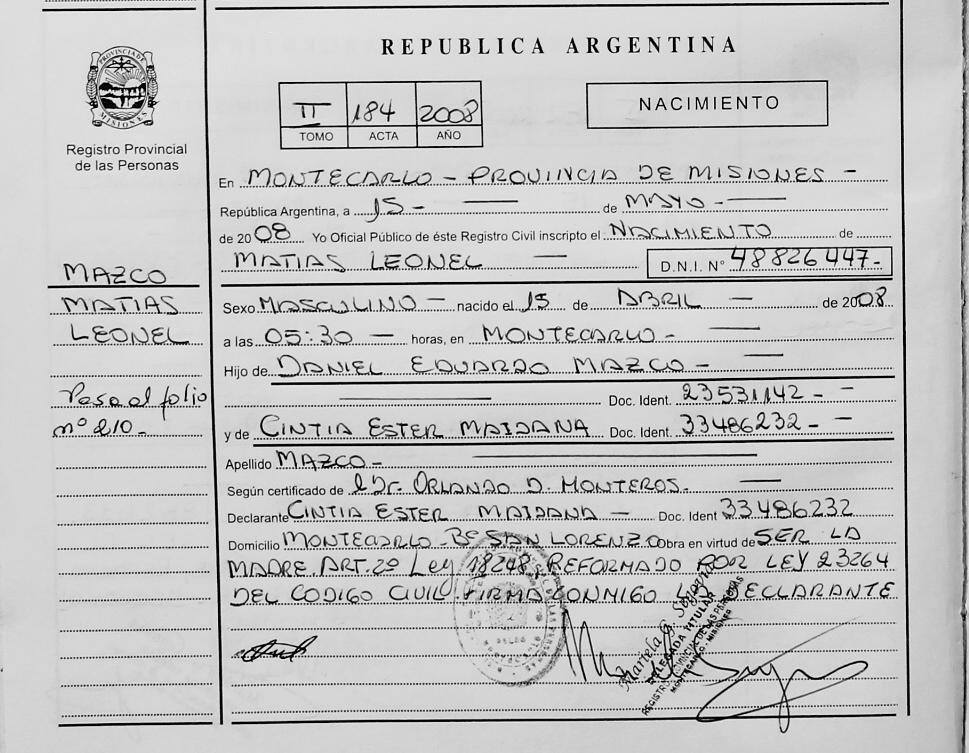 PROVINCIA DE MISIONES
Registro Provincial
de las Personas
MAZCO
MATIAS
LEONEL
Pasa al folio
nº 210.-
REPUBLICA ARGENTINA
II 184 2008
TOMO ACTA AÑO
NACIMIENTO
En MONTECARLO - PROVINCIA DE MISIONES -
República Argentina, a 15 - de MAYO -
de 2008 Yo Oficial Público de éste Registro Civil inscripto el NACIMIENTO de
MATIAS LEONEL — D.N.I. N° 48826447-
Sexo MASCULINO - nacido el 15 de ABRIL — de 2008
a las 05:30 — horas, en MONTECARLO -
Hijo de DANIEL EDUARDO MAZCO -
Doc. Ident. 23531142 -
y de CINTIA ESTER MAIDANA Doc. Ident. 33486232 -
Apellido MAZCO -
Según certificado de el Dr. ORLANDO D. MONTEROS.
Declarante CINTIA ESTER MAIDANA - Doc. Ident 33486232
Domicilio MONTECARLO - Bº SAN LORENZO Obra en virtud de SER LA
MADRE. ART. 2º Ley 18248, REFORMADO POR LEY 23264
DEL CODIGO CIVIL. FIRMA CONMIGO LA DECLARANTE
Mariela G.
DELEGADA TITULAR
REGISTRO PROVINCIAL DE LAS PERSONAS
MONTECARLO - MISIONES